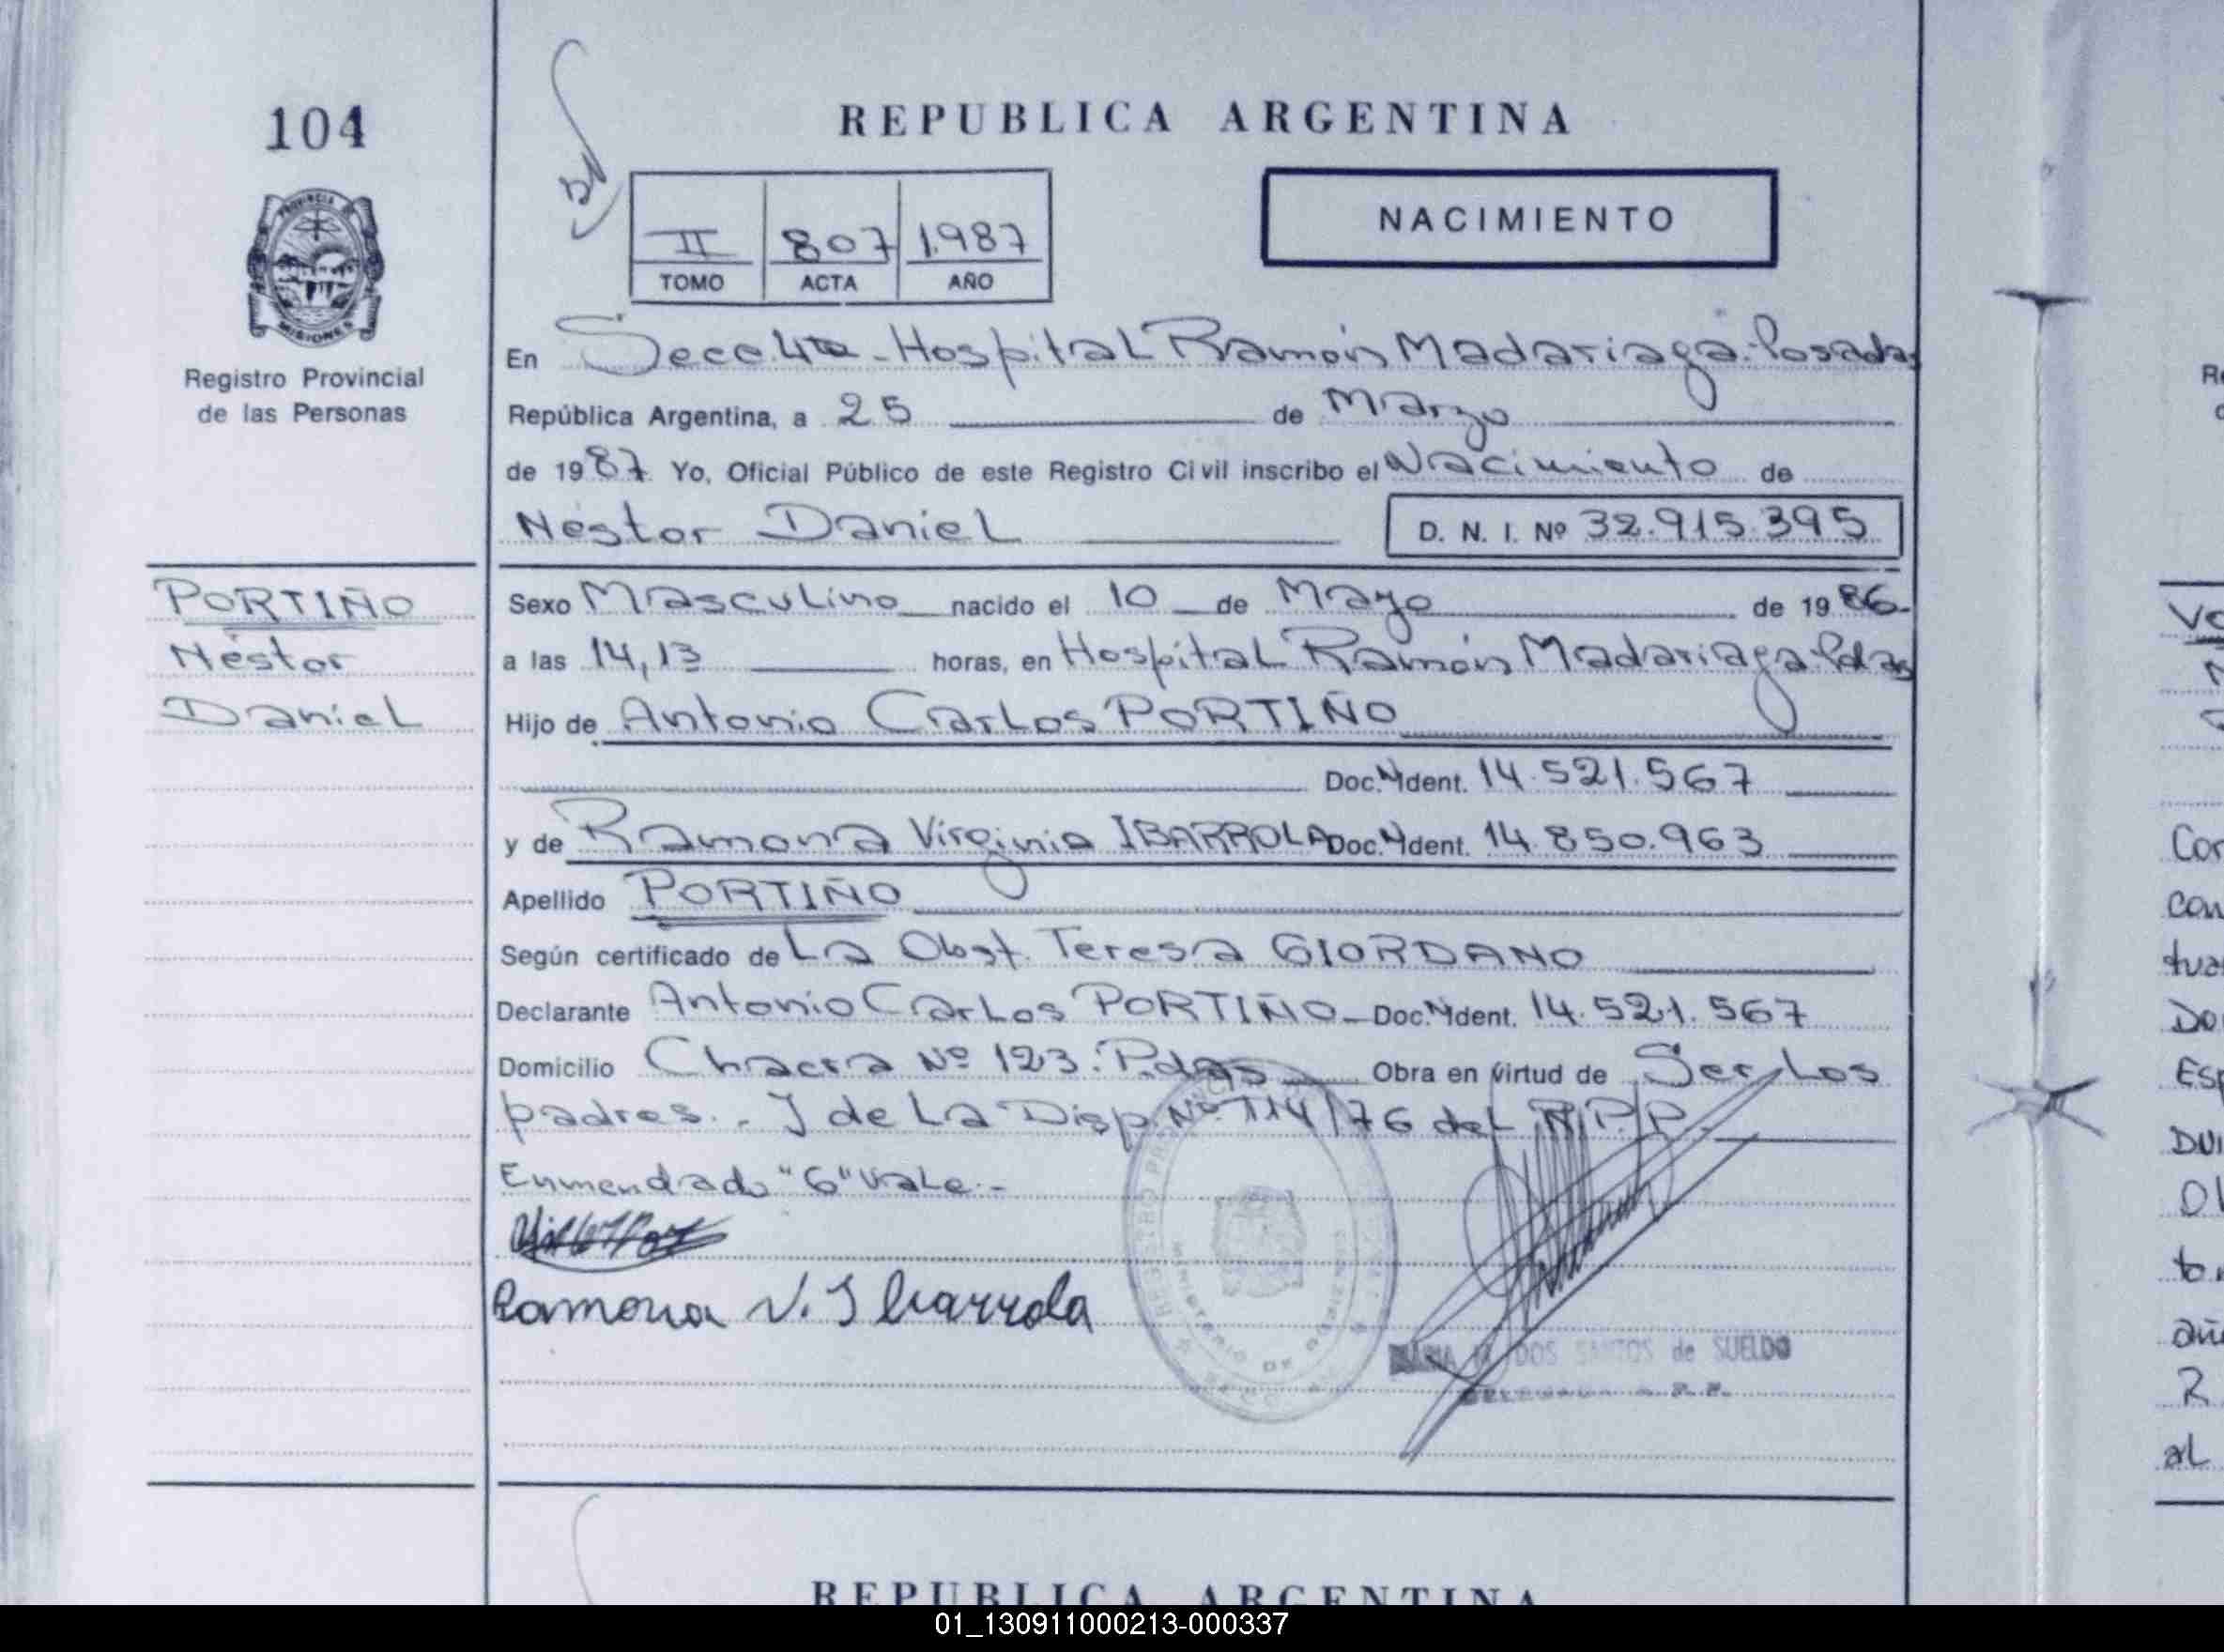 104
REPUBLICA ARGENTINA
II 807 1.987
TOMO ACTA AÑO
NACIMIENTO
PROVINCIA
MISIONES
Registro Provincial
de las Personas
En Secc. 4ta - Hospital Ramón Madariaga - Posadas
República Argentina, a 25 de Marzo
de 1987 Yo, Oficial Público de este Registro Civil inscribo el Nacimiento de
Néstor Daniel
D. N. I. Nº 32.915.395
PORTIÑO
Néstor
Daniel
Sexo Masculino nacido el 10 de Mayo de 1986-
a las 14,13 horas, en Hospital Ramón Madariaga Pdas
Hijo de Antonio Carlos PORTIÑO
Doc. Ident. 14.521.567
y de Ramona Virginia IBARROLA Doc. Ident. 14.850.963
Apellido PORTIÑO
Según certificado de La Obst. Teresa GIORDANO
Declarante Antonio Carlos PORTIÑO - Doc. Ident. 14.521.567
Domicilio Chacra Nº 123. Pdas Obra en virtud de Ser Los
padres. - I de La Disp. Nº 114/76 del R.P.P.
Enmendado "6" Vale.-
Ramona V. Ibarrola
DOS SANTOS de SUELDO
REPUBLICA ARGENTINA
01_130911000213-000337